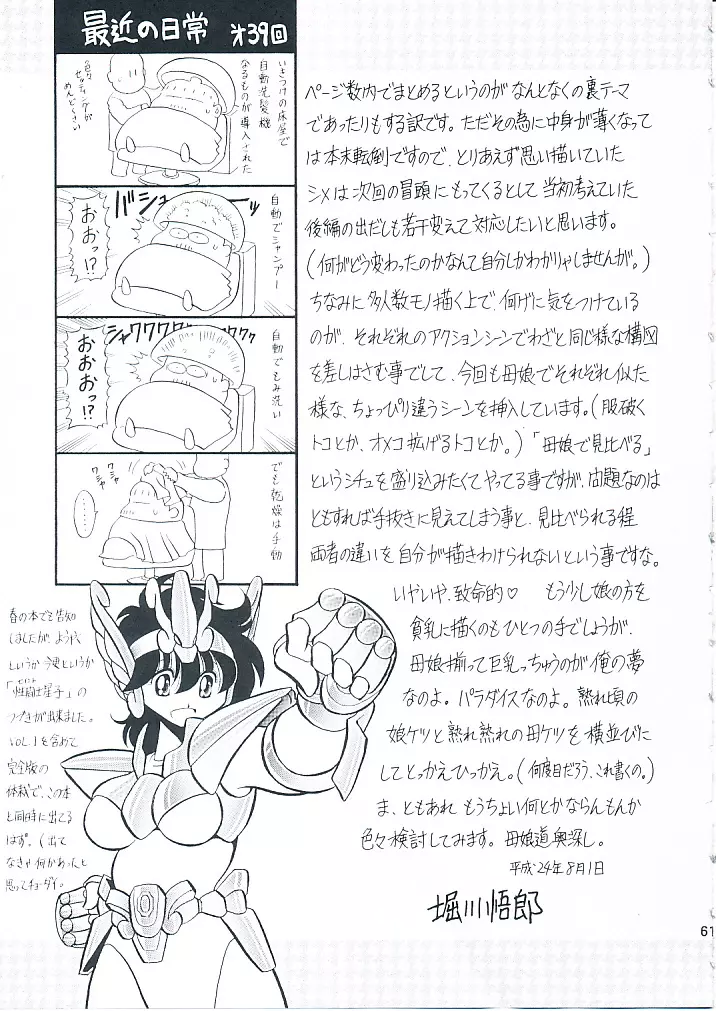 最近の日常 才39回
いきつけの床屋で
自動洗髪機
なるものが導入された
色々
セッティングが
めんどくさい
自動でシャンプー
バシューーッ
おおっ!?
自動でもみ洗い
シャクワクワクワクワク
おおおっ!?
でも乾燥は手動
クシャ
クシャ
……
ページ数内でまとめるというのがなんとなくの裏テーマ
であったりもする訳です。ただその為に中身が薄くなって
は本末転倒ですので、とりあえず思い描いていた
シメは次回の冒頭にもってくるとして当初考えていた
後編の出だしも若干変えて対応したいと思います。
(何がどう変わったのかなんて自分しかわかりゃしませんが。)
ちなみに多人数モノ描く上で、何げに気をつけている
のが、それぞれのアクションシーンでわざと同じ様な構図
を差しはさむ事でして、今回も母娘でそれぞれ似た
様な、ちょっぴり違うシーンを挿入しています。(服破く
トコとか、オメコ拡げるトコとか。)「母娘で見比べる」
というシチュを盛り込みたくてやってる事ですが、問題なのは
ともすれば手抜きに見えてしまう事と、見比べられる程
両者の違いを自分が描きわけられないという事ですな。
いやいや、致命的♡ もう少し娘の方を
貧乳に描くのもひとつの手でしょうが、
母娘揃って巨乳っちゅうのが俺の夢
なのよ。パラダイスなのよ。熟れ頃の
娘ケツと熟れ熟れの母ケツを横並びに
してとっかえひっかえ。(何度目だろう、これ書くの。)
ま、ともあれ もうちょい何とかならんもんか
色々検討してみます。母娘道奥深し。
平成24年8月1日
堀川悟郎
春の本でも告知
しましたが、ようやく
というか今更というか
「性闘士星子」の
つづきが出来ました。
VOL.1を含めて
完全版の
体裁で、この本
と同時に出てる
はず。(出て
なきゃ何かあったと
思ってチョーダイ。
61